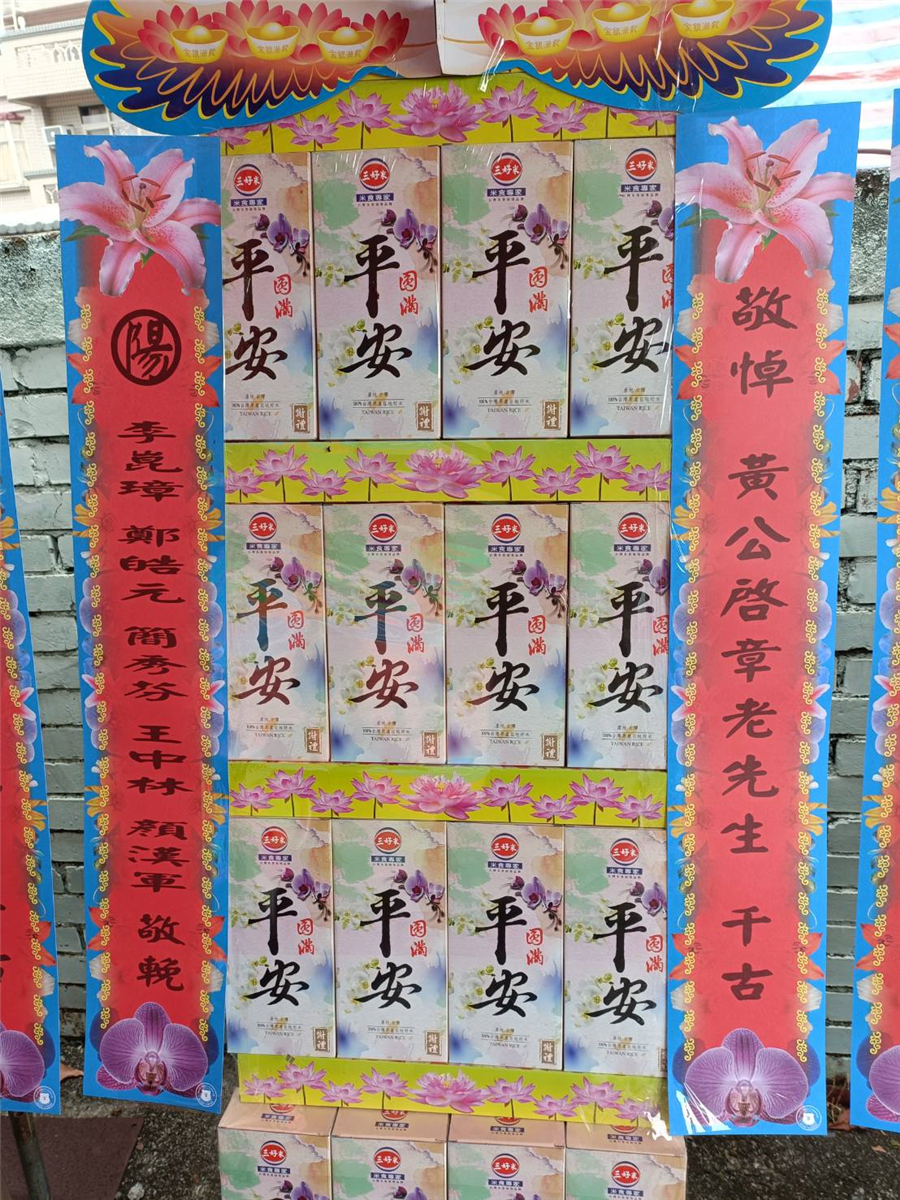 敬悼 黃公啓章老先生 千古
陽
李崑璋 鄭皓元 簡秀芬 王中林 顏漢軍 敬輓
三好米
米食專家
平安
圓滿
TAIWAN RICE
三好米
米食專家
平安
圓滿
TAIWAN RICE
謝禮
三好米
米食專家
平安
圓滿
TAIWAN RICE
謝禮
三好米
米食專家
平安
圓滿
TAIWAN RICE
三好米
米食專家
平安
圓滿
TAIWAN RICE
謝禮
三好米
米食專家
平安
圓滿
TAIWAN RICE
三好米
米食專家
平安
圓滿
TAIWAN RICE
謝禮
三好米
米食專家
平安
圓滿
TAIWAN RICE
三好米
米食專家
平安
圓滿
TAIWAN RICE
謝禮
三好米
米食專家
平安
圓滿
TAIWAN RICE
謝禮
三好米
米食專家
平安
圓滿
TAIWAN RICE
謝禮
三好米
米食專家
平安
圓滿
TAIWAN RICE
三好米
米食專家
三好米
米食專家
三好米
米食專家
三好米
米食專家